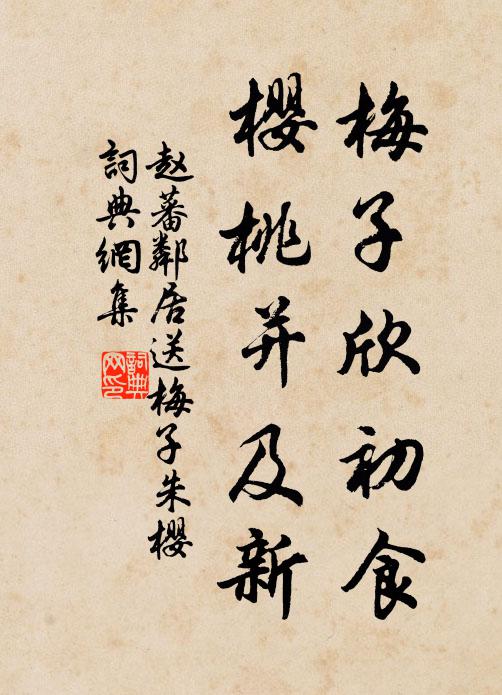 梅子欣初食
櫻桃并及新
赵蕃鄰居送梅子朱櫻
詞典網集
詞典网印